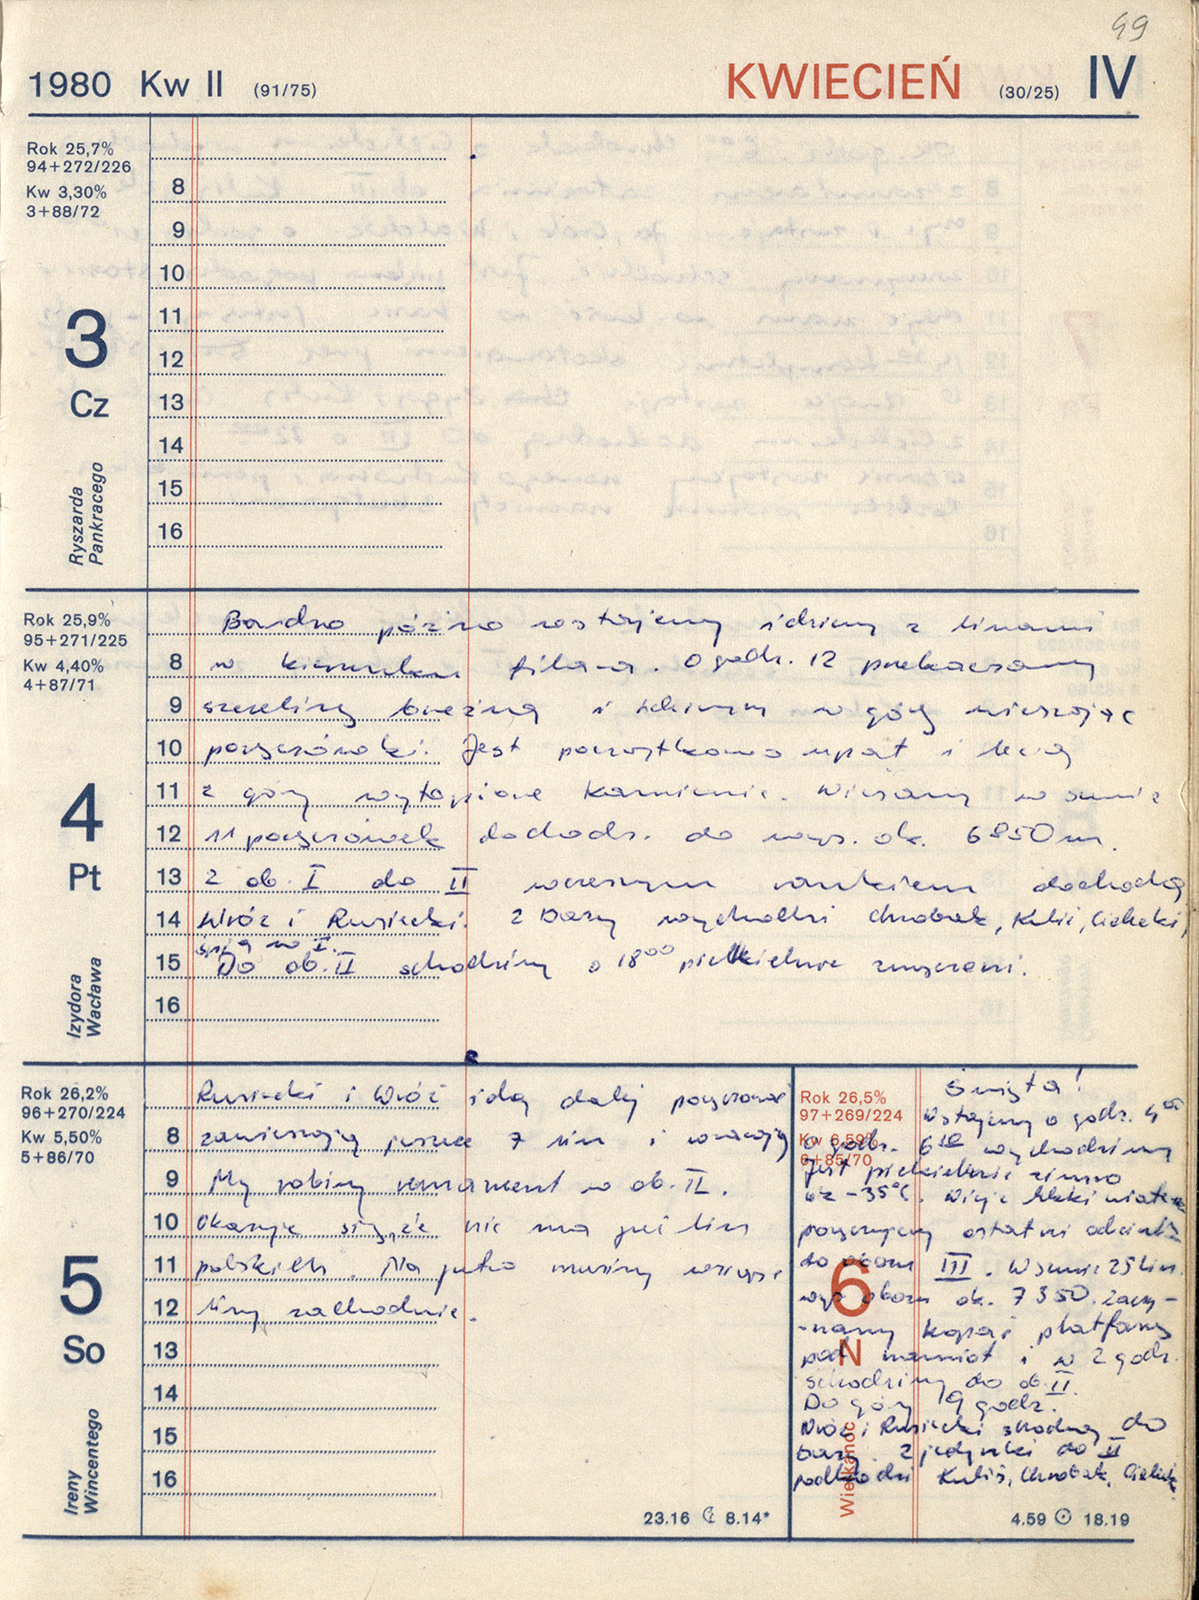 49
1980 Kw II (91/75) KWIECIEŃ (30/25) IV
Rok 25,7%
94+272/226
Kw 3,30%
3+88/72
3
Cz
Ryszarda
Pankracego
8
9
10
11
12
13
14
15
16
Rok 25,9%
95+271/225
Kw 4,40%
4+87/71
4
Pt
Izydora
Wacława
Bardzo późno wstajemy idziemy z linami
8 w kierunku filara. O godz. 12 przekraczamy
9 szczelinę brzeżną i idziemy w górę wieszając
10 poręczówki. Jest początkowo upał i lecą
11 z góry wytopione kamienie. Wieszamy w sumie
12 11 poręczówek dochodz. do wys. ok. 6850 m.
13 Z ob. I do II wczesnym rankiem dochodzą
14 Wróż i Rusiecki. Z bazy wychodzi Chrobak, Kulis, Cichecki,
śpią w I.
15 Do ob. II schodzimy o 18⁰⁰ piekielnie zmęczeni.
16
Rok 26,2%
96+270/224
Kw 5,50%
5+86/70
5
So
Ireny
Wincentego
Rusiecki i Wróż idą dalej poręczować
8 zawieszają jeszcze 7 lin i wracają
9 My robimy remanent w ob. II.
10 Okazuje się, że nie ma już lin
11 polskich. Na jutro musimy wziąść
12 liny zachodnie.
13
14
15
16
23.16 ☾ 8.14*
Rok 26,5%
97+269/224
Kw 6,59%
6+85/70
6
N
Wielkanoc
Święta!
Wstajemy o godz. 4⁰⁰
o godz. 6¹⁰ wychodzimy
Jest piekielnie zimno
ok -35°C. Wieje lekki wiatr
poręczujemy ostatni odcinek
do obozu III. W sumie 25 lin.
wys obozu ok. 7350. Zaczy-
-namy kopać platformę
pod namiot i w 2 godz.
schodzimy do ob. II.
Do góry 9 godz.
Wróż i Rusiecki schodzą do
bazy. Z jedynki do II
podchodzi Kulis, Chrobak, Cichecki
4.59 ☉ 18.19